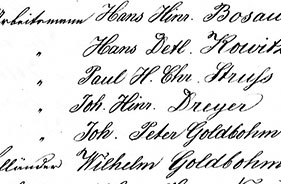 Arbeitsmann Hans Hinr. Bosau
" Hans Detl. Kowitz
" Paul H. Chr. Struss
" Joh. Hinr. Dreyer
" Joh. Peter Goldbohm
Wilhelm Goldbohm